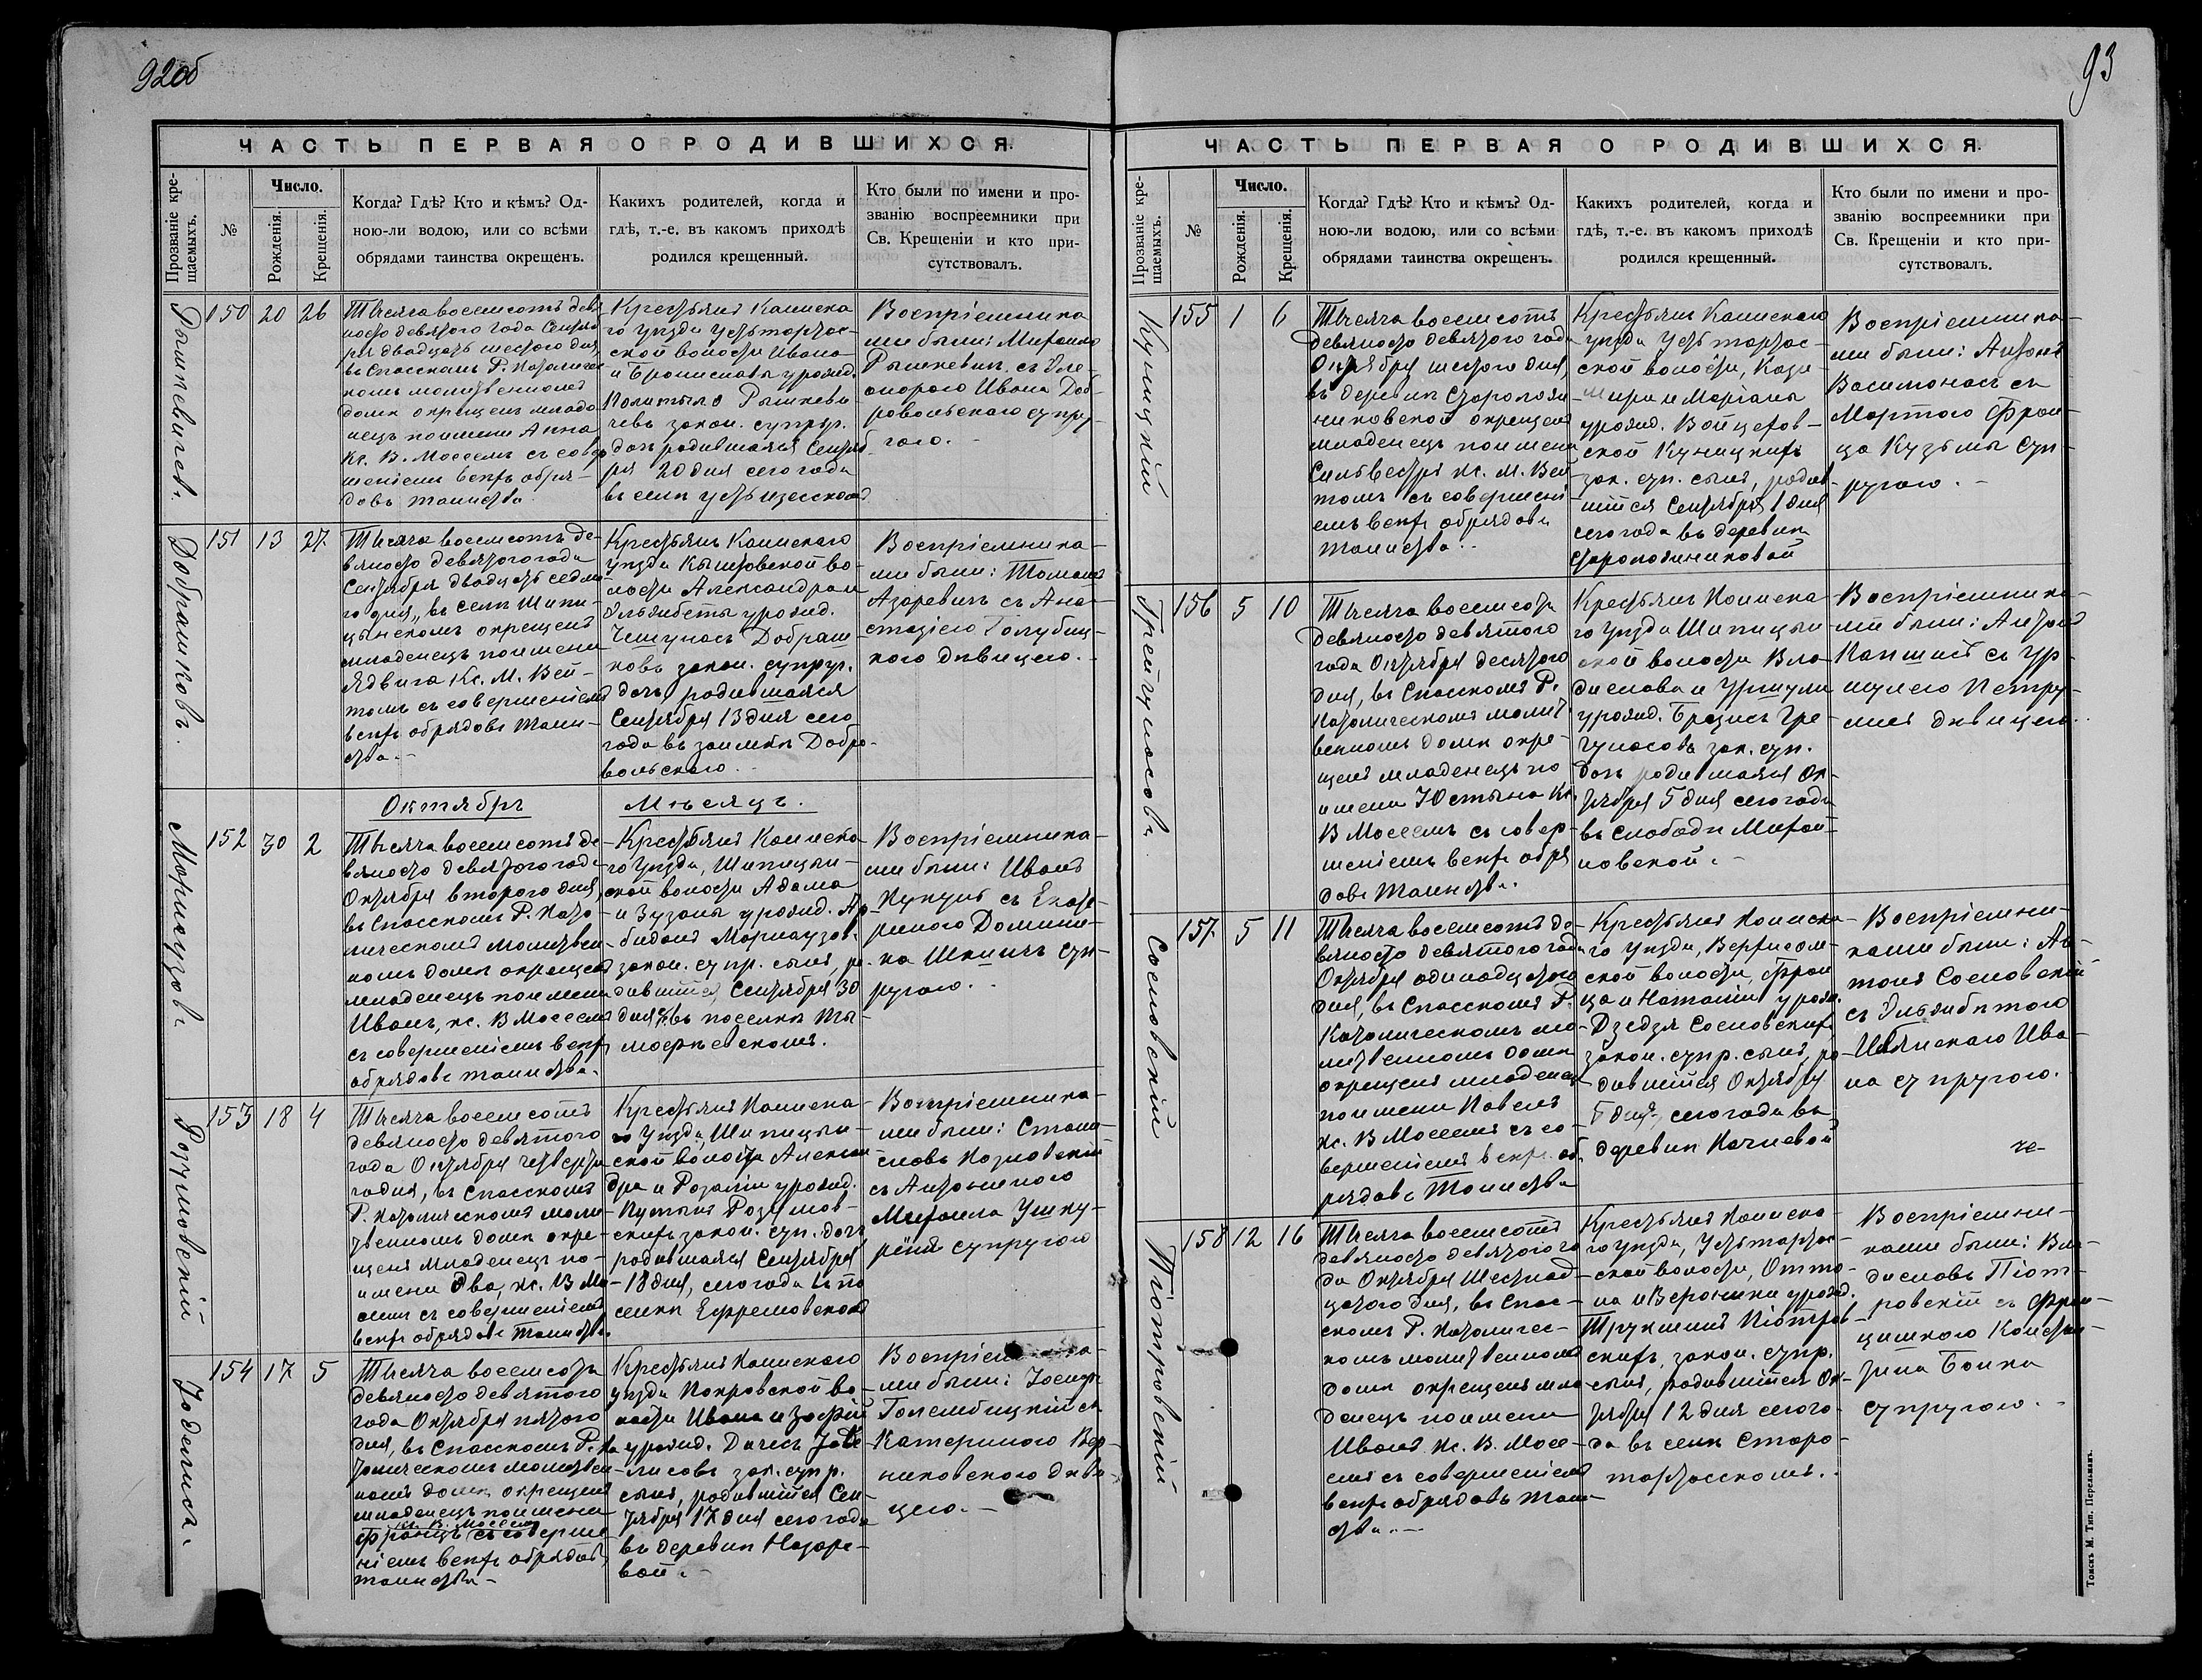 92об
ЧАСТЬ ПЕРВАЯ О РОДИВШИХСЯ.
Прозваніе кре-
щаемыхъ.
№
Число.
Рожденія.
Крещенія.
Когда? Гдѣ? Кто и кѣмъ? Од-
ною-ли водою, или со всѣми
обрядами таинства окрещенъ.
Какихъ родителей, когда и
гдѣ, т.-е. въ какомъ приходѣ
родился крещенный.
Кто были по имени и про-
званію воспреемники при
Св. Крещеніи и кто при-
сутствовалъ.
Рышкевичев.
150 20 26
Тысяча восемьсотъ девя
носто девятого года Сентяб
ря двадцать шестого дня,
въ Спасскомъ Р. Католичес
комъ молитвенномъ
домѣ окрещенъ младе
нецъ по имени Анна
Кс. В. Моссемъ съ совер
шеніемъ всѣхъ обря-
довъ таинства.
Крестьянъ Каинска
го уѣзда Устьтартас-
ской волости Ивана
и Брониславы урожд.
Рышкеви
чевъ закон. супруг.
дочь родившаяся Сентяб
ря 20 дня сего года
въ селѣ
Воспріемника
ми были: Михаилъ
Рышкевич, съ Эле-
онорою Ивана Доб-
ровольскаго супру-
гою.
Добрашковъ.
151 13 27
Тысяча восемьсотъ де-
вяносто девятого года
Сентября двадцать седмо
го дня, въ селѣ Шипи-
цынскомъ окрещенъ
младенецъ по имени
Ядвига Кс. М. Вей-
томъ съ совершеніемъ
всѣхъ обрядовъ Таин-
ства.
Крестьянъ Каинскаго
уѣзда Кыштовской во-
лости Александра и
Эльзбеты урожд.
Добраш
ковъ закон. супруг.
дочь, родившаяся
Сентября 13 дня сего
года въ заимкѣ Добро-
вольского.
Воспріемника-
ми были: Томашъ
Азаревичъ съ Ана-
стазіею Голубиц-
кого дѣвицею.
Октябрь Мѣсяцъ.
Морнаузовъ
152 30 2
Тысяча восемьсотъ де-
вяносто девятого года
Октября второго дня,
въ Спасскомъ Р. Като-
лическомъ молитвен
номъ домѣ окрещенъ
младенецъ по имени
Иванъ, кс. В Моссемъ
съ совершеніемъ всѣхъ
обрядовъ таинства.
Крестьянъ Каинска-
го Уѣзда, Шипицын-
ской волости Адама
и Зузаны урожд. Ар-
биданъ Морнаузов.
закон. супр. сынъ, ро
дившійся, Сентября 30
дня въ поселкѣ Ти-
мофѣевскомъ.
Воспріемника-
ми были: Иванъ
Кукутъ съ Екате-
риною Домини-
ка Шкинчъ суп-
ругою.
Розумовскій
153 18 4
Тысяча восемьсотъ
девяносто девятого
года Октября четверта
го дня, въ Спасскомъ
Р. Католическомъ моли
твенномъ домѣ окре-
щенъ Младенецъ по-
имени Эва, кс. В Мо
семъ съ совершеніемъ
всѣхъ обрядовъ Таинства.
Крестьянъ Каинска
го Уѣзда, Шипицын-
ской волости Алексан
дра и Розаліи урожд.
Розумов-
скихъ закон. суп. дочь
родившаяся Сентября
18 дня, сего года въ по
селкѣ Ефремовскомъ
Воспріемника-
ми были: Стани-
славъ Козловскій
съ Антониною
Михаила Ушку-
рёнъ супругою
Іоделиса.
154 17 5
Тысяча восемьсотъ
девяносто девятого
года Октября пятого
дня, въ Спасскомъ Р. Ка
толическомъ молитвен-
номъ домѣ, окрещенъ
младенецъ по имени
кс. В. Моссемъ
Францъ съ соверше
ніемъ всѣхъ обрядовъ
таинства
Крестьянъ Каинского
уѣзда Покровской во-
лости Ивана и Зофіи
урожд. Іоде
лисовъ зак. супр.
сынъ, родившійся Сен-
тября 17 дня сего года
въ деревни Назаре-
вой.
Воспріемника-
ми были: Іосифъ
Голембицкій съ
Катериною Вер-
никовского дѣви
цею.
93
ЧАСТЬ ПЕРВАЯ О РОДИВШИХСЯ.
Прозваніе кре-
щаемыхъ.
№
Число.
Рожденія.
Крещенія.
Когда? Гдѣ? Кто и кѣмъ? Од-
ною-ли водою, или со всѣми
обрядами таинства окрещенъ.
Какихъ родителей, когда и
гдѣ, т.-е. въ какомъ приходѣ
родился крещенный.
Кто были по имени и про-
званію воспреемники при
Св. Крещеніи и кто при-
сутствовалъ.
Куницкій
155 1 6
Тысяча восемьсотъ
девяносто девятого года
Октября шестого дня,
въ деревнѣ
окрещенъ
младенецъ по имени
Сильвестръ кс. М. Вей
томъ съ совершені
емъ всѣхъ обрядовъ
Таинства.
Крестьянъ Каинскаго
уѣзда Устьтартас-
ской волости, Кази
мира и Маріаны
урожд. Войцехов-
ской Куницкихъ
зак. суп. сынъ, родив
шійся Сентября 1 дня
сего года въ деревни
Воспріемника-
ми были: Антонъ
Василюнасъ съ
Мартою Фран-
ца Кузьмы суп-
ругою.
Грейчунасовъ
156 5 10
Тысяча восемьсотъ
девяносто девятого
года Октября десятого
дня, въ Спасскомъ Р.
Католическомъ молит
венномъ домѣ окре-
щенъ младенецъ по
имени Юстына Кс.
В Моссемъ съ совер-
шеніемъ всѣхъ обря
довъ Таинства.
Крестьянъ Каинска
го уѣзда Шипицын
ской волости Вла-
дислава и Уршули
урожд. Гре-
чунасовъ зак. суп.
дочь родившаяся Ок-
тября 5 дня сего года
въ Слободѣ Михай-
ловской.
Воспріемника-
ми были: Антонъ
Капшисъ съ Ур-
шулею Петру-
лисъ дѣвицею.
Сосновскій
157. 5 11
Тысяча восемьсотъ де-
вяносто девятого года
Октября одинадцатого
дня, въ Спасскомъ Р.
Католическомъ мо-
литвенномъ домѣ
окрещенъ младенецъ
по имени Павелъ
кс. В Моссемъ съ со-
вершеніемъ всѣхъ об
рядовъ Таинства
Крестьянъ Каинска-
го Уѣзда,
ской волости, Фран
ца и Наталіи урожд.
Дзедзя Сосновскихъ
закон. супр. сынъ, ро-
дившійся Октября
5 дня, сего года въ
деревни
Воспріемни-
ками были: Ан-
тонъ Сосновскій
съ Эльзбѣтою
Ива-
на супругою.
Піотровскій
158 12 16
Тысяча восемьсотъ
девяносто девятого го
да Октября Шестнад-
цатого дня, въ Спас-
скомъ Р. Католичес-
комъ молитвенномъ
домѣ окрещенъ мла
денецъ по имени
Иванъ кс. В. Мосс-
емъ съ совершеніемъ
всѣхъ обрядовъ Таин-
ства.
Крестьянъ Каинска-
го уѣзда, Устьтартас-
ской волости, Отто-
на и Вероники урожд.
Піотров-
скихъ, закон. супр.
сынъ, родившійся Ок-
тября 12 дня сего го-
да въ селѣ Старо-
тартасскомъ.
Воспріемни-
ками были: Вла-
диславъ Піот-
ровскій съ Фран-
цишкою Констан-
тина Бойка
супругою.
Томскъ М. Тип. Перельманъ.